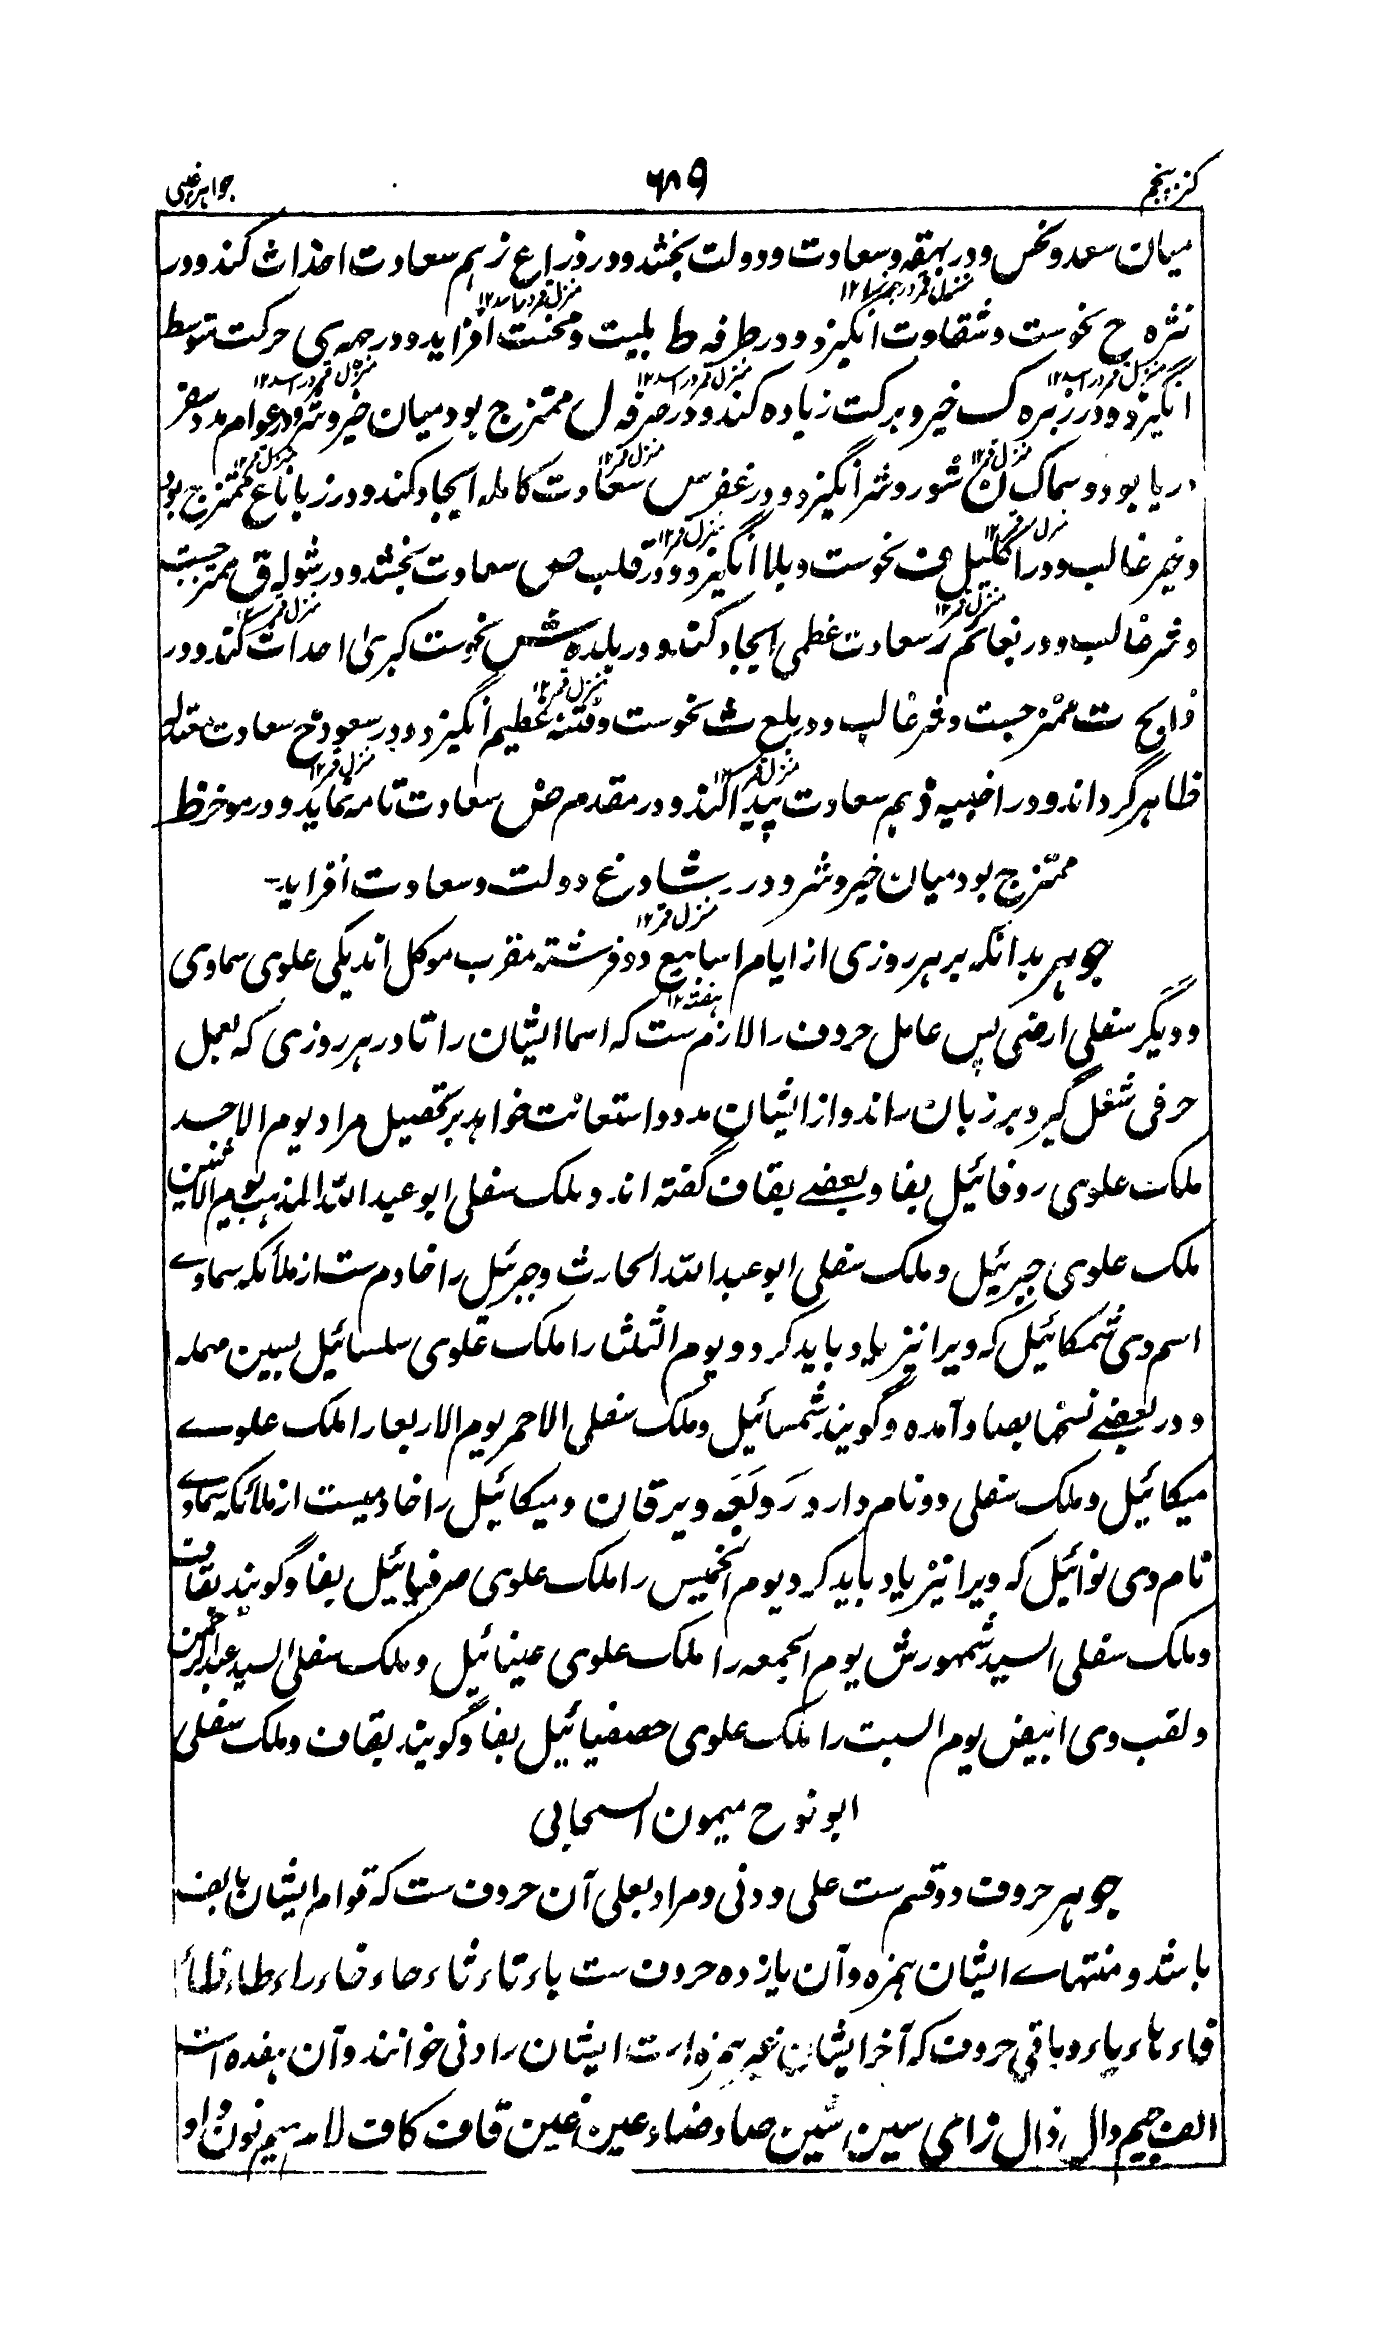 کنز پنجم
۶۸۹
جواهر غیبی
میان سعد و نحس و در هقعه و سعادت و دولت بخشد و در ذراع ز هم سعادت احداث کند و در
نثره ح نحوست و شقاوت انگیزد و در طرفه ط بلیت و محنت افزاید و در جبهه ی حرکت متوسط
انگیزد و در زبره ک خیر و برکت زیاده کند و در صرفه ل ممتزج بود میان خیر و شر و در عوام مدد سفر
دریا بود و سماک ن شور و شر انگیزد و در غفر س سعادت کامله ایجاد کند و در زبانا ع ممتزج بود
و خیر غالب و در اکلیل ف نحوست و بلا انگیزد و در قلب ص سعادت بخشد و در شوله ق ممتزجست
و شر غالب و در نعائم ر سعادت عظمی ایجاد کند و در بلده ش نحوست کبری احداث کند و در
ذابح ت ممتزجست و شر غالب و در بلع ث نحوست و فتنه عظیم انگیزد و در سعود خ سعادت
ظاهر گرداند و در اخبیه ذ هم سعادت پیدا کند و در مقدم ض سعادت تامه نماید و در موخر ظ
ممتزج بود میان خیر و شر و در رشا و غ دولت و سعادت افزاید
جوهر بدانکه بر هر روزی از ایام اسابیع دو فرشته مقرب موکل اند یکی علوی سماوی
و دیگر سفلی ارضی پس عامل حروف را لازم ست که اسما ایشان را تا در هر روزی که بعمل
حرفی شغل گیرد بر زبان راند و از ایشان مدد و استعانت خواهد بر تحصیل مراد یوم الاحد
ملک علوی روفائیل بفا و بعضے بقاف گفته اند و ملک سفلی ابو عبد الله المذهب یوم الاثنین
ملک علوی جبرئیل و ملک سفلی ابو عبد الله الحارث و جبرئیل را خادم ست از ملائکه سماوے
اسم وی شمکائیل که ویرا نیز یاد باید کرد و یوم الثلثا را ملک علوی سلسائیل بسین مهمله
و در بعضے نسخها بصاد آمده و گویند شمسائیل و ملک سفلی الاحمر یوم الاربعا را ملک علوے
میکائیل و ملک سفلی دو نام دارد زَوبَعَه و برقان و میکائیل را خادمیست از ملائکه سماوے
نام وی نوائیل که ویرا نیز یاد باید کرد یوم الخمیس را ملک علوی صرفیائیل بفا و گویند بقاف
و ملک سفلی السید شمهورش یوم الجمعه را ملک علوی عینائیل و ملک سفلی السید عبد الرحمن
و لقب وی ابیض یوم السبت را ملک علوی حصفیائیل بفا و گویند بقاف و ملک سفلی
ابو نوح میمون السحابی
جوهر حروف دو قسم ست علی و دنی و مراد بعلی آن حروف ست که قوام ایشان بالف
باشد و منتهاے ایشان همزه و آن یازده حروف ست باء تاء ثاء حاء خاء راء طاء ظاء
فاء هاء یاء و باقی حروف که آخر ایشان غیر همزه است ایشان را دنی خوانند و آن هفده است
الف جیم دال ذال زای سین شین صاد ضاد عین غین قاف کاف لام میم نون واو